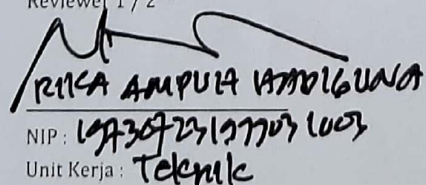 Reviewer 1 / 2
RIKA AMPUH HADIGUNA
NIP : 197307231999031003
Unit Kerja : Teknik